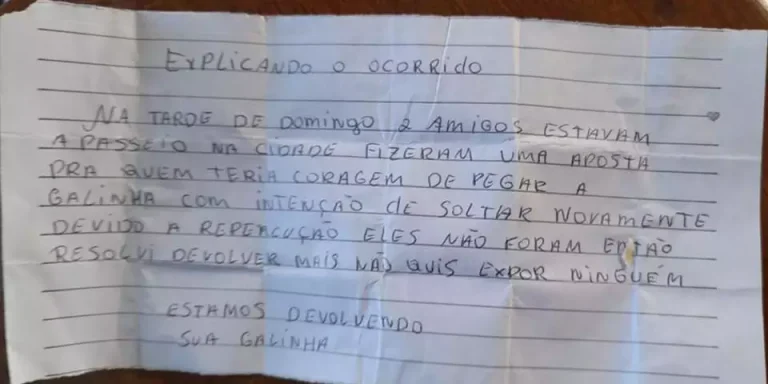 EXPLICANDO O OCORRIDO
NA TARDE DE DOMINGO 2 AMIGOS ESTAVAM
A PASSEIO NA CIDADE FIZERAM UMA APOSTA
PRA QUEM TERIA CORAGEM DE PEGAR A
GALINHA COM INTENÇÃO de SOLTAR NOVAMENTE
DEVIDO A REPERCUÇÃO ELES NÃO FORAM ENTÃO
RESOLVI DEVOLVER MAIS NÃO QUIS EXPOR NINGUÉM
ESTAMOS DEVOLVENDO
SUA GALINHA